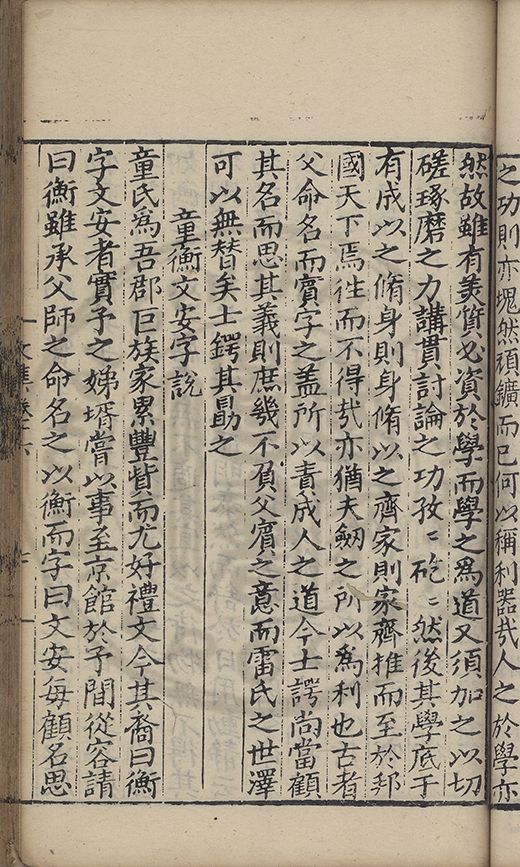 之功則亦塊然頑鑛而已何以稱利器㢤人之於學亦
然故雖有羙質必資於學而學之爲道又須加之以切
磋琢磨之力講貫討論之功孜〻矻〻然後其學底于
有成以之脩身則身脩以之齊家則家齊推而至於邦
國天下焉徃而不得㢤亦猶夫劒之所以爲利也古者
父命名而賓字之盖所以責成人之道今士諤尚當顧
其名而思其義則庶幾不負父賓之意而雷氏之世澤
可以無替矣士鍔其勗之
童衡文安字說
童氏爲吾郡巨族家累豐貲而尤好禮文今其裔曰衡
字文安者實予之娣壻嘗以事至京館於予間從容請
曰衡雖承父師之命名之以衡而字曰文安每顧名思